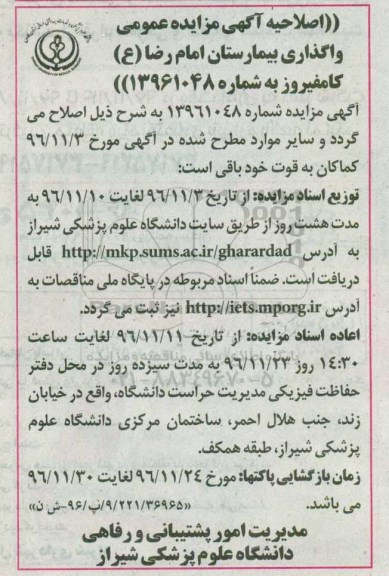 ((اصلاحیه آگهی مزایده عمومی
واگذاری بیمارستان امام رضا (ع)
کامفیروز به شماره ۱۳۹۶۱۰۴۸))
آگهی مزایده شماره ۱۳۹۶۱۰۴۸ به شرح ذیل اصلاح می
گردد و سایر موارد مطرح شده در آگهی مورخ ۹۶/۱۱/۳
کماکان به قوت خود باقی است:
توزیع اسناد مزایده: از تاریخ ۹۶/۱۱/۳ لغایت ۹۶/۱۱/۱۰ به
مدت هشت روز از طریق سایت دانشگاه علوم پزشکی شیراز
به آدرس http://mkp.sums.ac.ir/gharardad قابل
دریافت است. ضمناً اسناد مربوطه در پایگاه ملی مناقصات به
آدرس http://iets.mporg.ir نیز ثبت می گردد.
اعاده اسناد مزایده: از تاریخ ۹۶/۱۱/۱۱ لغایت ساعت
۱۴:۳۰ روز ۹۶/۱۱/۲۳ به مدت سیزده روز در محل دفتر
حفاظت فیزیکی مدیریت حراست دانشگاه، واقع در خیابان
زند، جنب هلال احمر، ساختمان مرکزی دانشگاه علوم
پزشکی شیراز، طبقه همکف.
زمان بازگشایی پاکتها: مورخ ۹۶/۱۱/۲۴ لغایت ۹۶/۱۱/۳۰
می باشد. «۹/۲۲۱/۳۶۹۶۵/پ/۹۶-ش ن»
مدیریت امور پشتیبانی و رفاهی
دانشگاه علوم پزشکی شیراز